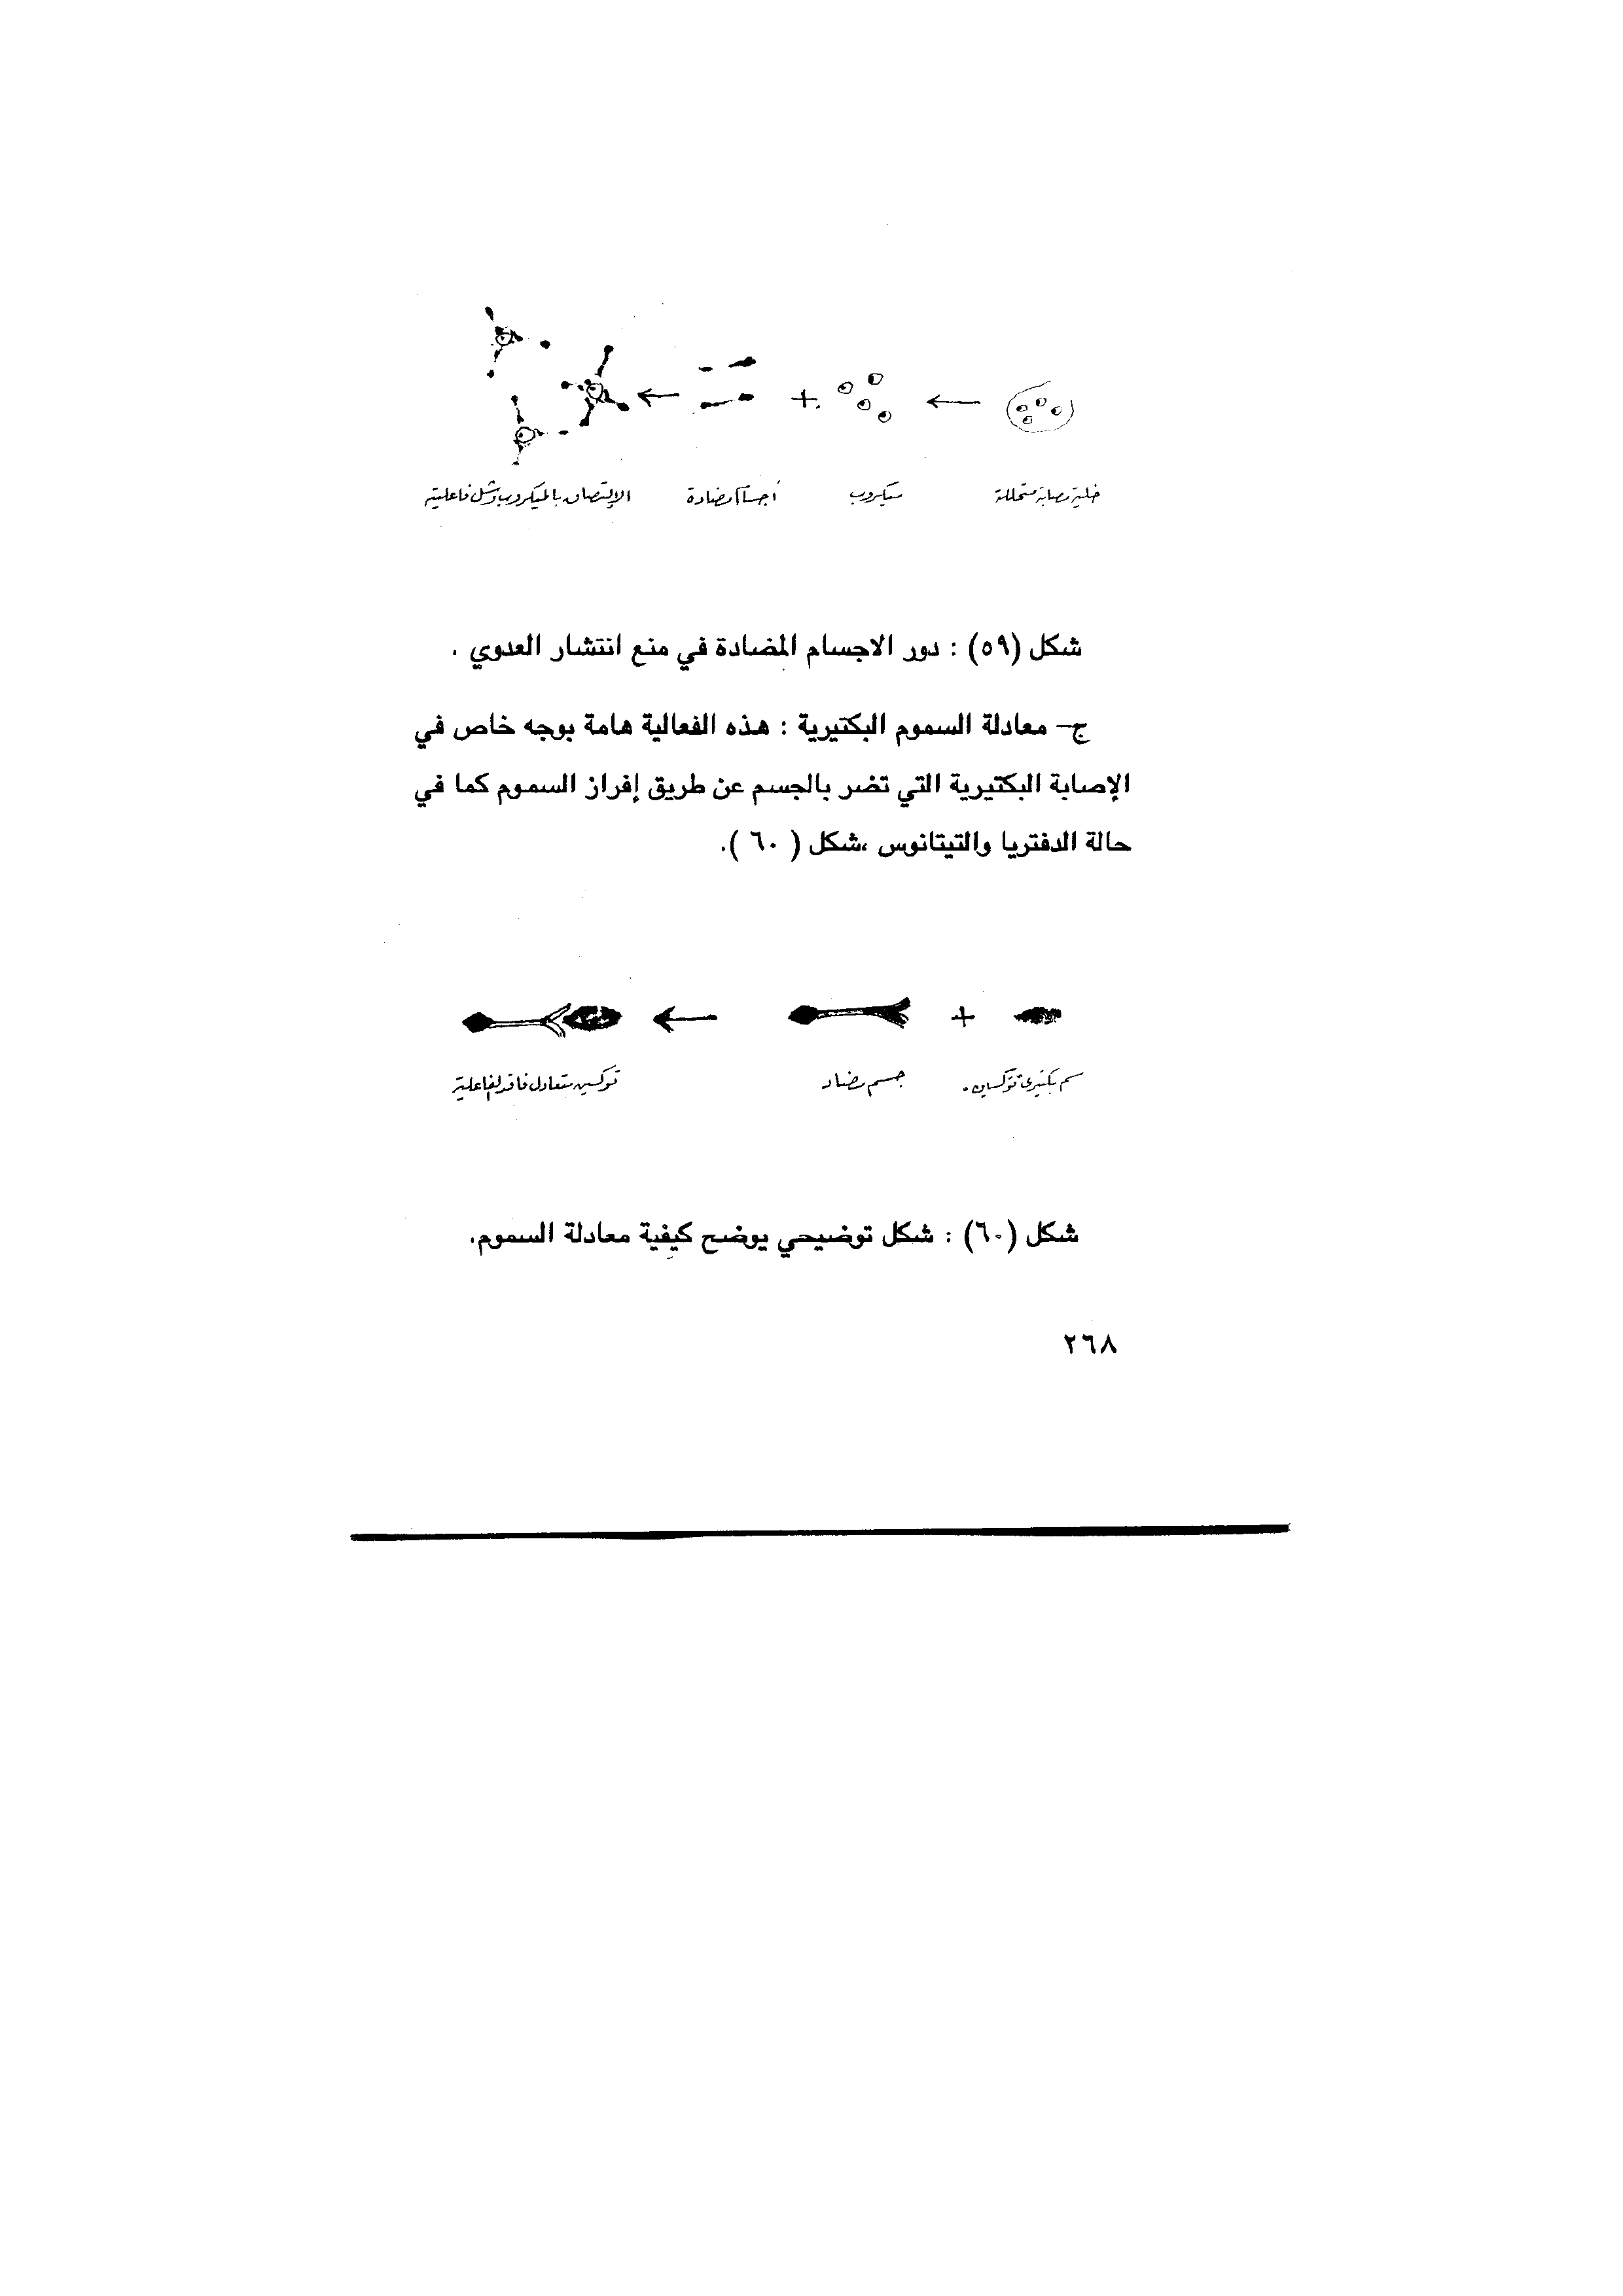 خلية مصابة متحللة ميكروب أجسام مضادة الإلتصاق بالميكروب وشل فاعليته
شكل (٥٩) : دور الاجسام المضادة في منع انتشار العدوي .
ج- معادلة السموم البكتيرية : هذه الفعالية هامة بوجه خاص في
الإصابة البكتيرية التي تضر بالجسم عن طريق إفراز السموم كما في
حالة الدفتريا والتيتانوس ،شكل ( ٦٠ ).
سم بكتيرى توكسين . جسم مضاد توكسين متعادل فاقد لفاعليته
شكل (٦٠) : شكل توضيحي يوضح كيفية معادلة السموم.
٢٦٨